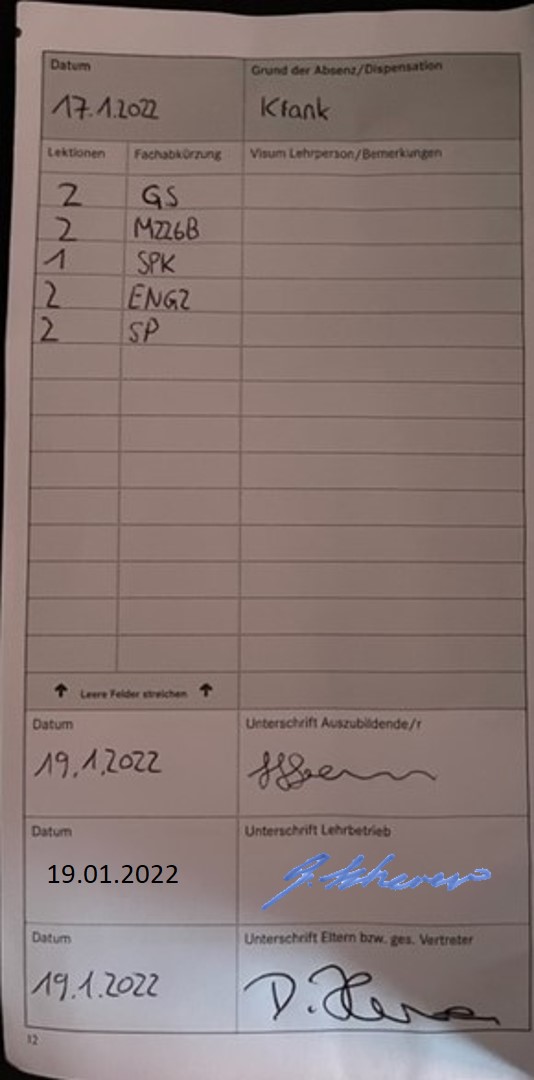 Datum Grund der Absenz/Dispensation
17.1.2022 Krank
Lektionen Fachabkürzung Visum Lehrperson/Bemerkungen
2 GS
2 M226B
1 SPK
2 ENG2
2 SP
↑ Leere Felder streichen ↑
Datum Unterschrift Auszubildende/r
19.1.2022
Datum Unterschrift Lehrbetrieb
19.01.2022
Datum Unterschrift Eltern bzw. ges. Vertreter
19.1.2022 D.
12